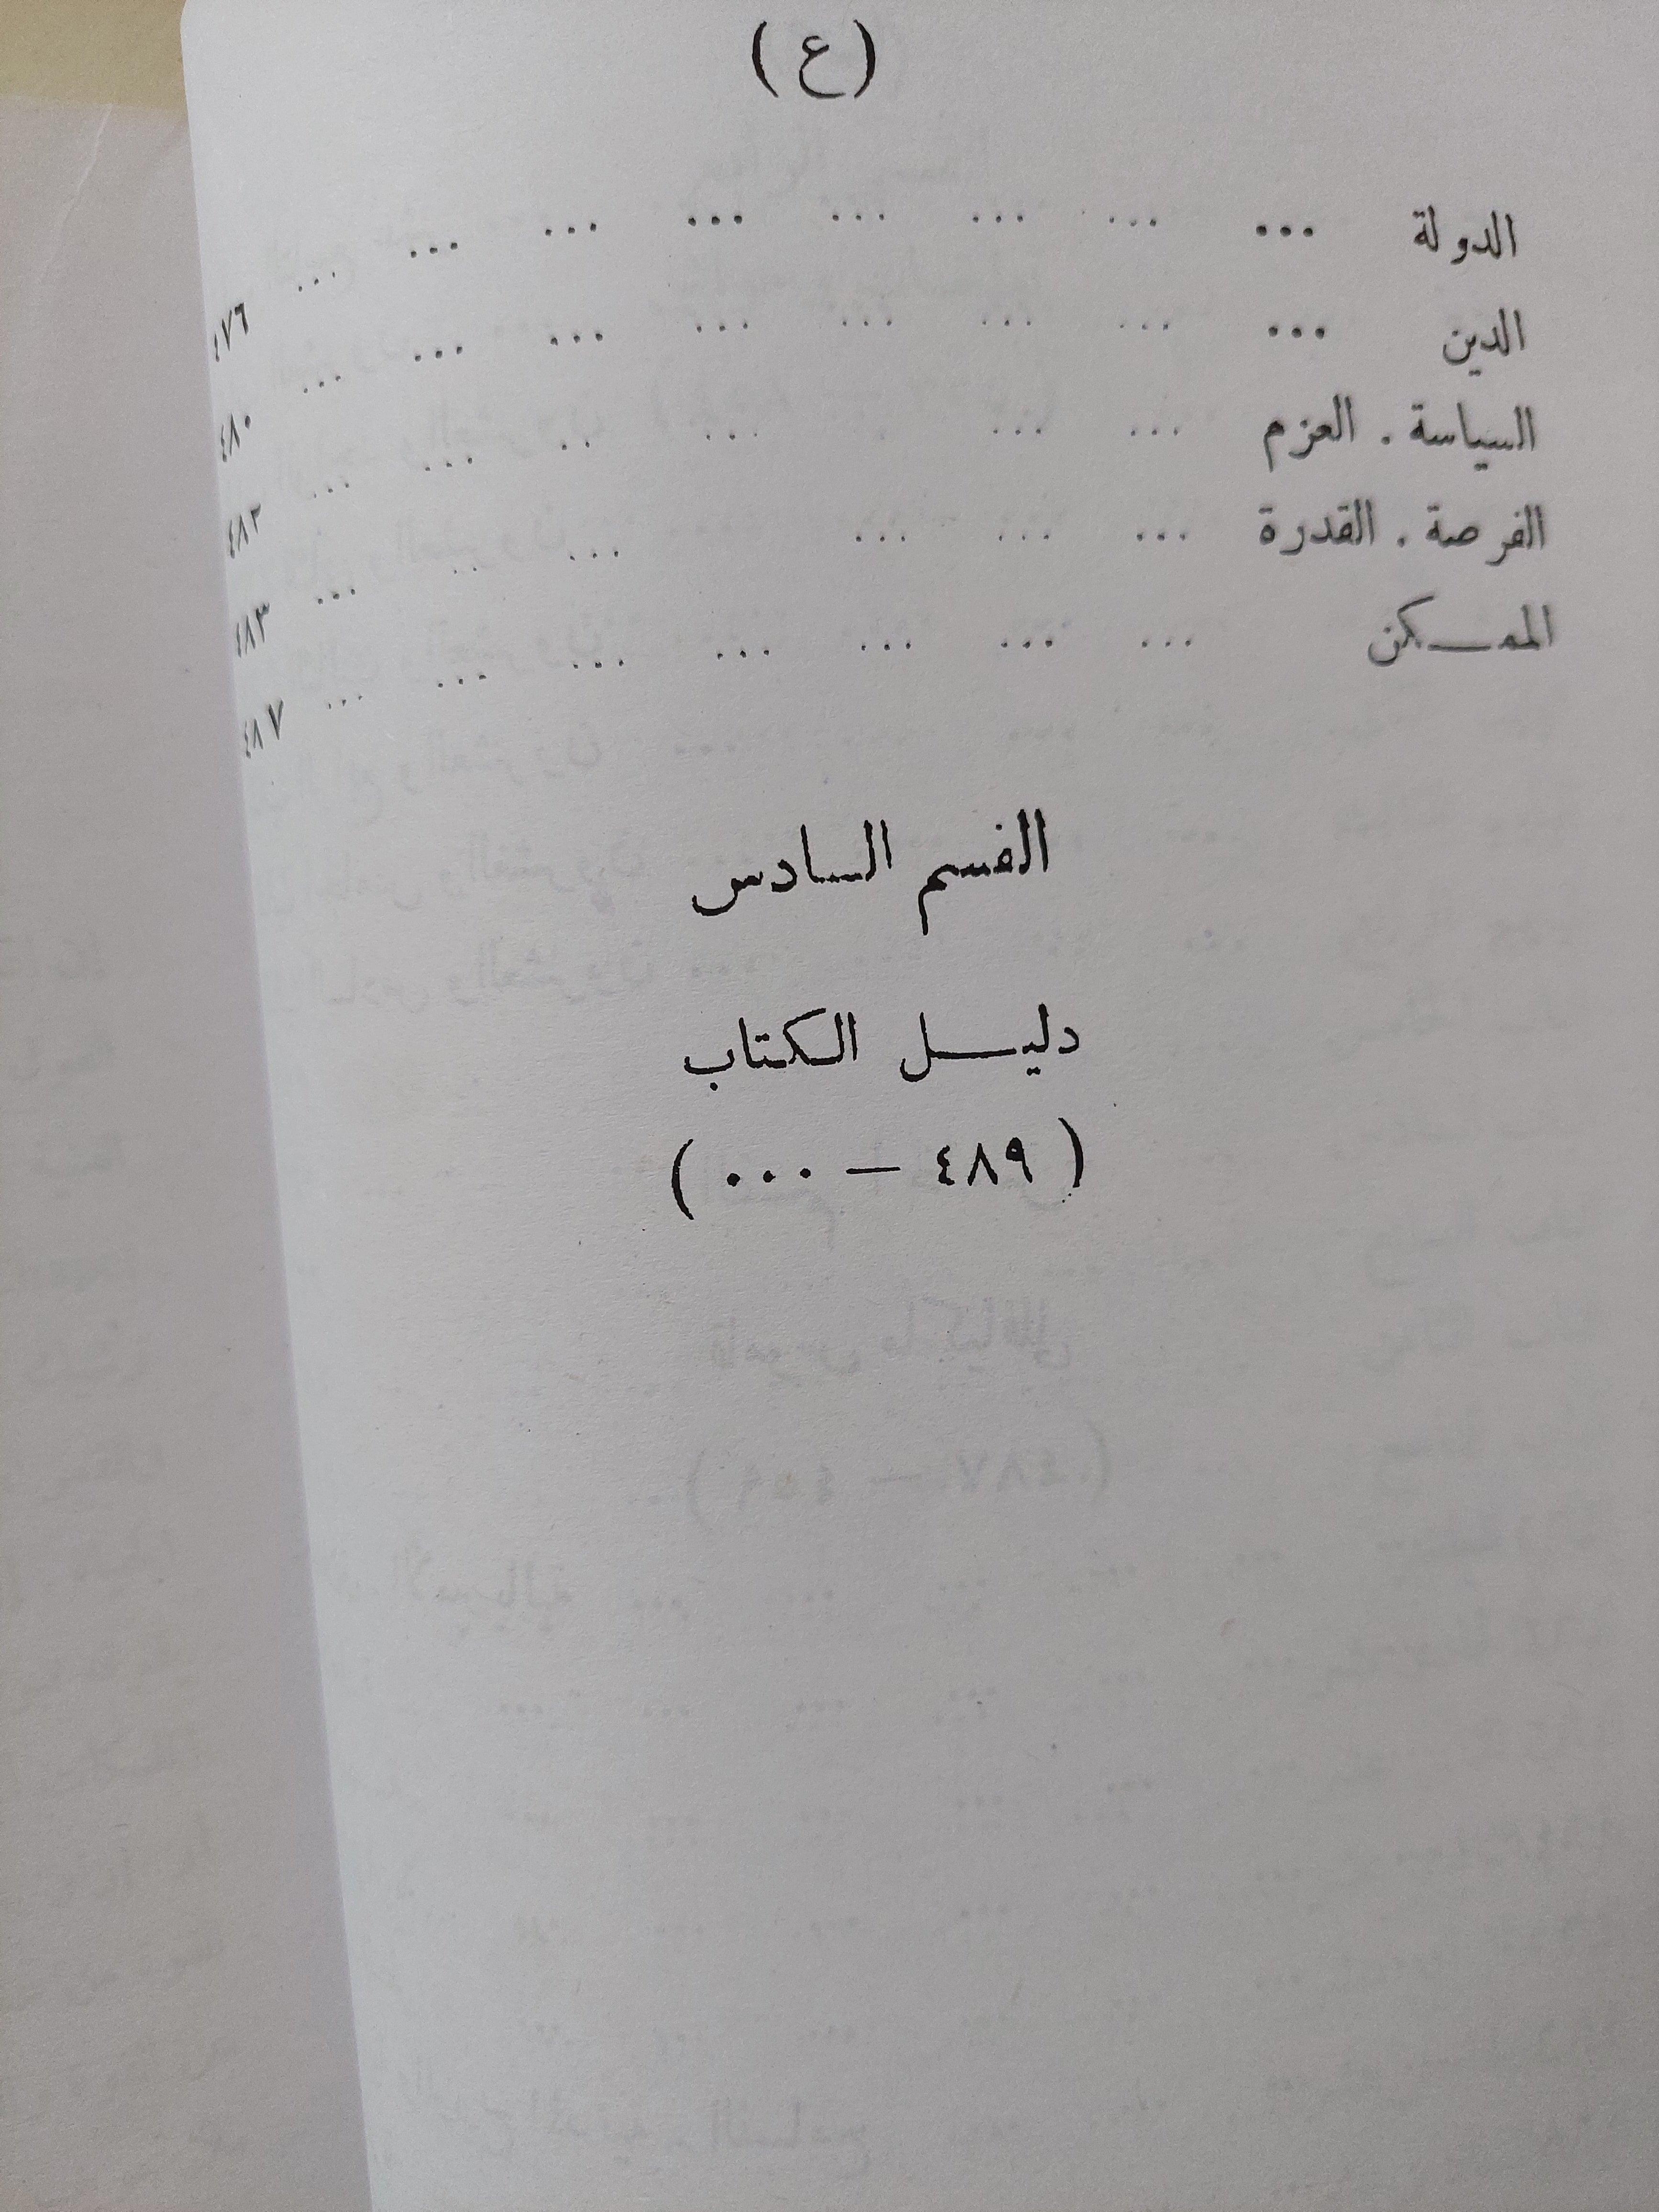 ( ع )
الدولة ... ... ... ... ... ... ... ... ٤٧٦
الدين ... ... ... ... ... ... ... ... ٤٨٠
السياسة . العزم ... ... ... .. ... ... ٤٨٢
الفرصة . القدرة ... ... ... ... .. ... ٤٨٣
الممكن ... ... ... ... ... ... ... ٤٨٧
القسم السادس
دليل الكتاب
( ٤٨٩ — ٠٠٠ )